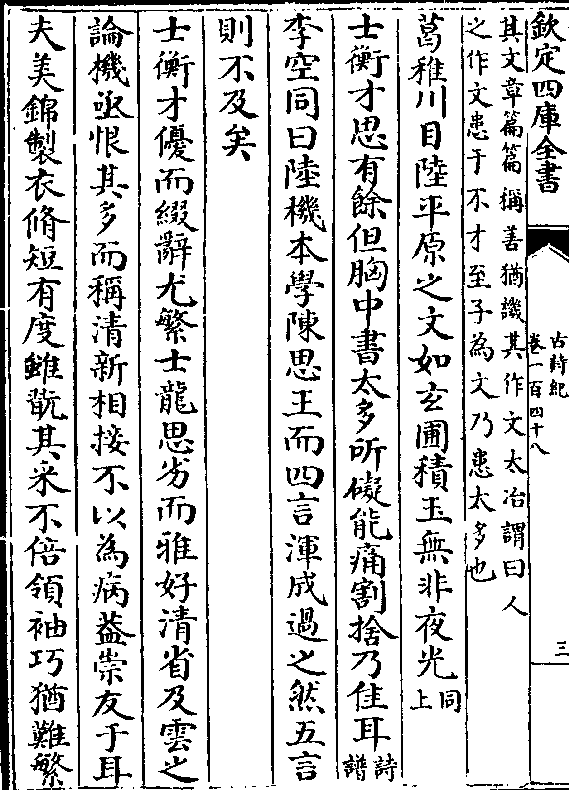 欽定四庫全書
古詩紀
卷一百四十八
三
其文章篇篇稱善猶譏其作文太冶謂曰人
之作文患于不才至子為文乃患太多也
葛稚川目陸平原之文如玄圃積玉無非夜光同上
士衡才思有餘但胸中書太多所礙能痛割捨乃佳耳詩譜
李空同曰陸機本學陳思王而四言渾成過之然五言
則不及矣
士衡才優而綴辭尤繁士龍思劣而雅好清省及雲之
論機亟恨其多而稱清新相接不以為病葢崇友于耳
夫美錦製衣脩短有度雖翫其采不倍領袖巧猶難繁